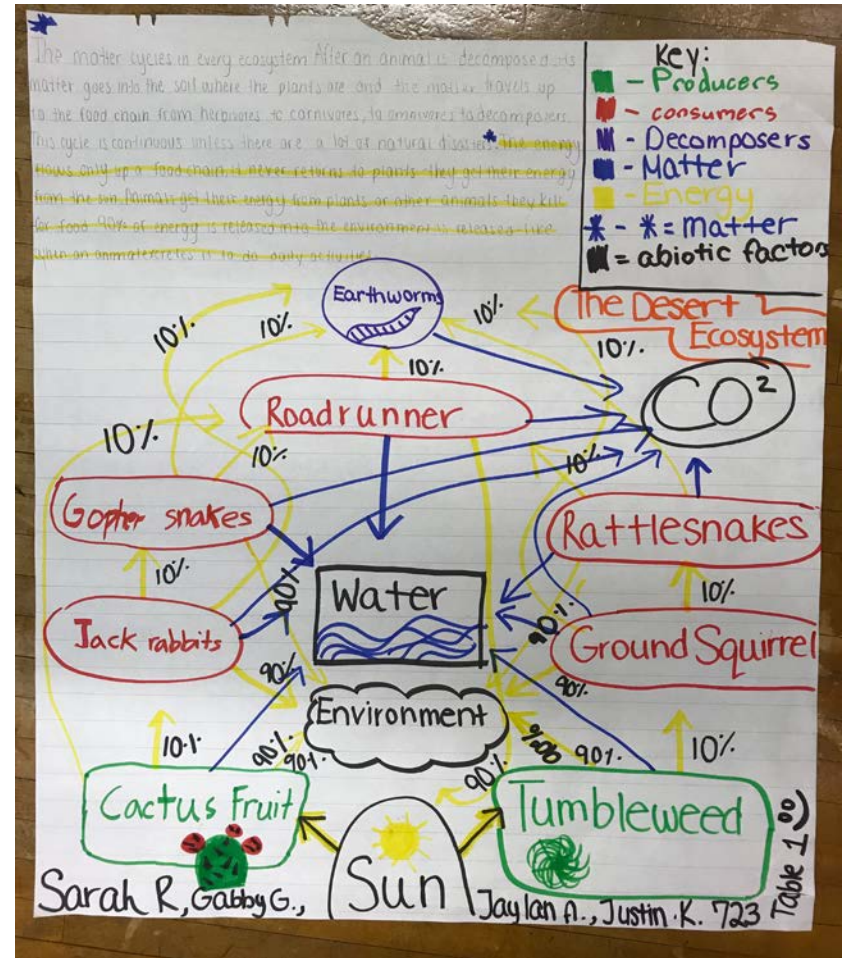 The matter cycles in every ecosystem. After an animal is decomposed its
matter goes into the soil where the plants are and the matter travels up
to the food chain from herbivores to carnivores, to omnivores to decomposers.
This cycle is continuous unless there are a lot of natural disasters. * The energy
flows only up a food chain, it never returns to plants they get their energy
from the sun. Animals get their energy from plants or other animals they kill
for food 90% of energy is released into the environment is released like
when an animal excretes to do daily activities.
Key:
- Producers
- consumers
- Decomposers
- Matter
- Energy
* - * = matter
= abiotic factors
The Desert
Ecosystem
Earthworms
10%
10%
10%
10%
10%
CO²
Roadrunner
10%
10%
10%
Gopher snakes
Rattlesnakes
10%
90%
Water
10%
Jack rabbits
90%
Ground Squirrel
90%
90%
Environment
10%
90%
90%
90%
90%
90%
10%
Cactus Fruit
Sun
Tumbleweed
Sarah R, Gabby G.,
Jaylan A., Justin K. 723
Table 1